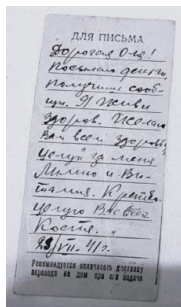 ДЛЯ ПИСЬМА
Дорогая Оля!
Посылаю деньги,
получишь сооб-
щи. Я жив и
здоров. Желаю
Вам всем здоровья
целуй за меня
Милю и Ви-
талия. Крепко
целую Вас всех
Костя.
23/VII-41 г.
Рекомендуется оплачивать доставку
перевода на дом при его подаче